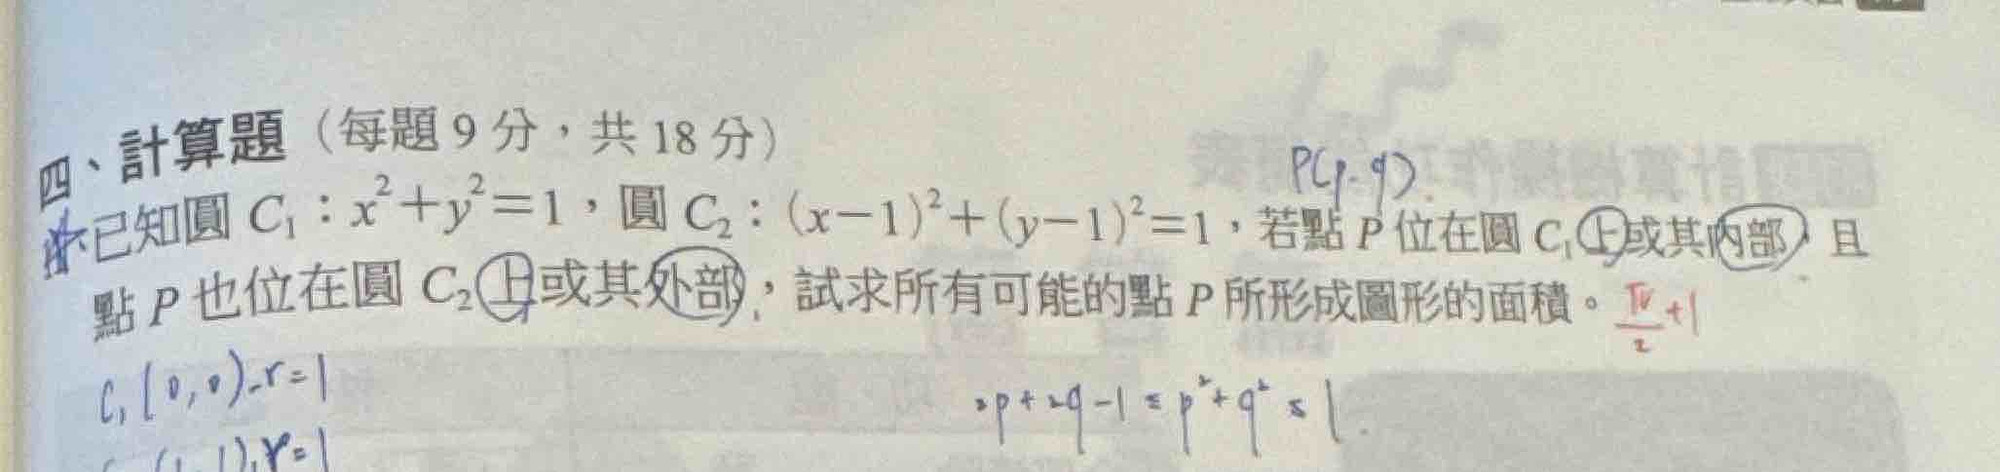 四、計算題（每題 9 分，共 18 分）
P(p.q).
已知圓 C₁：x²+y²=1，圓 C₂：(x−1)²+(y−1)²=1，若點 P 位在圓 C₁上或其內部，且
點 P 也位在圓 C₂上或其外部，試求所有可能的點 P 所形成圖形的面積。 π/2+1
C₁(0,0).r=1
2p+2q-1≤p²+q²≤1.
(1,1),r=1